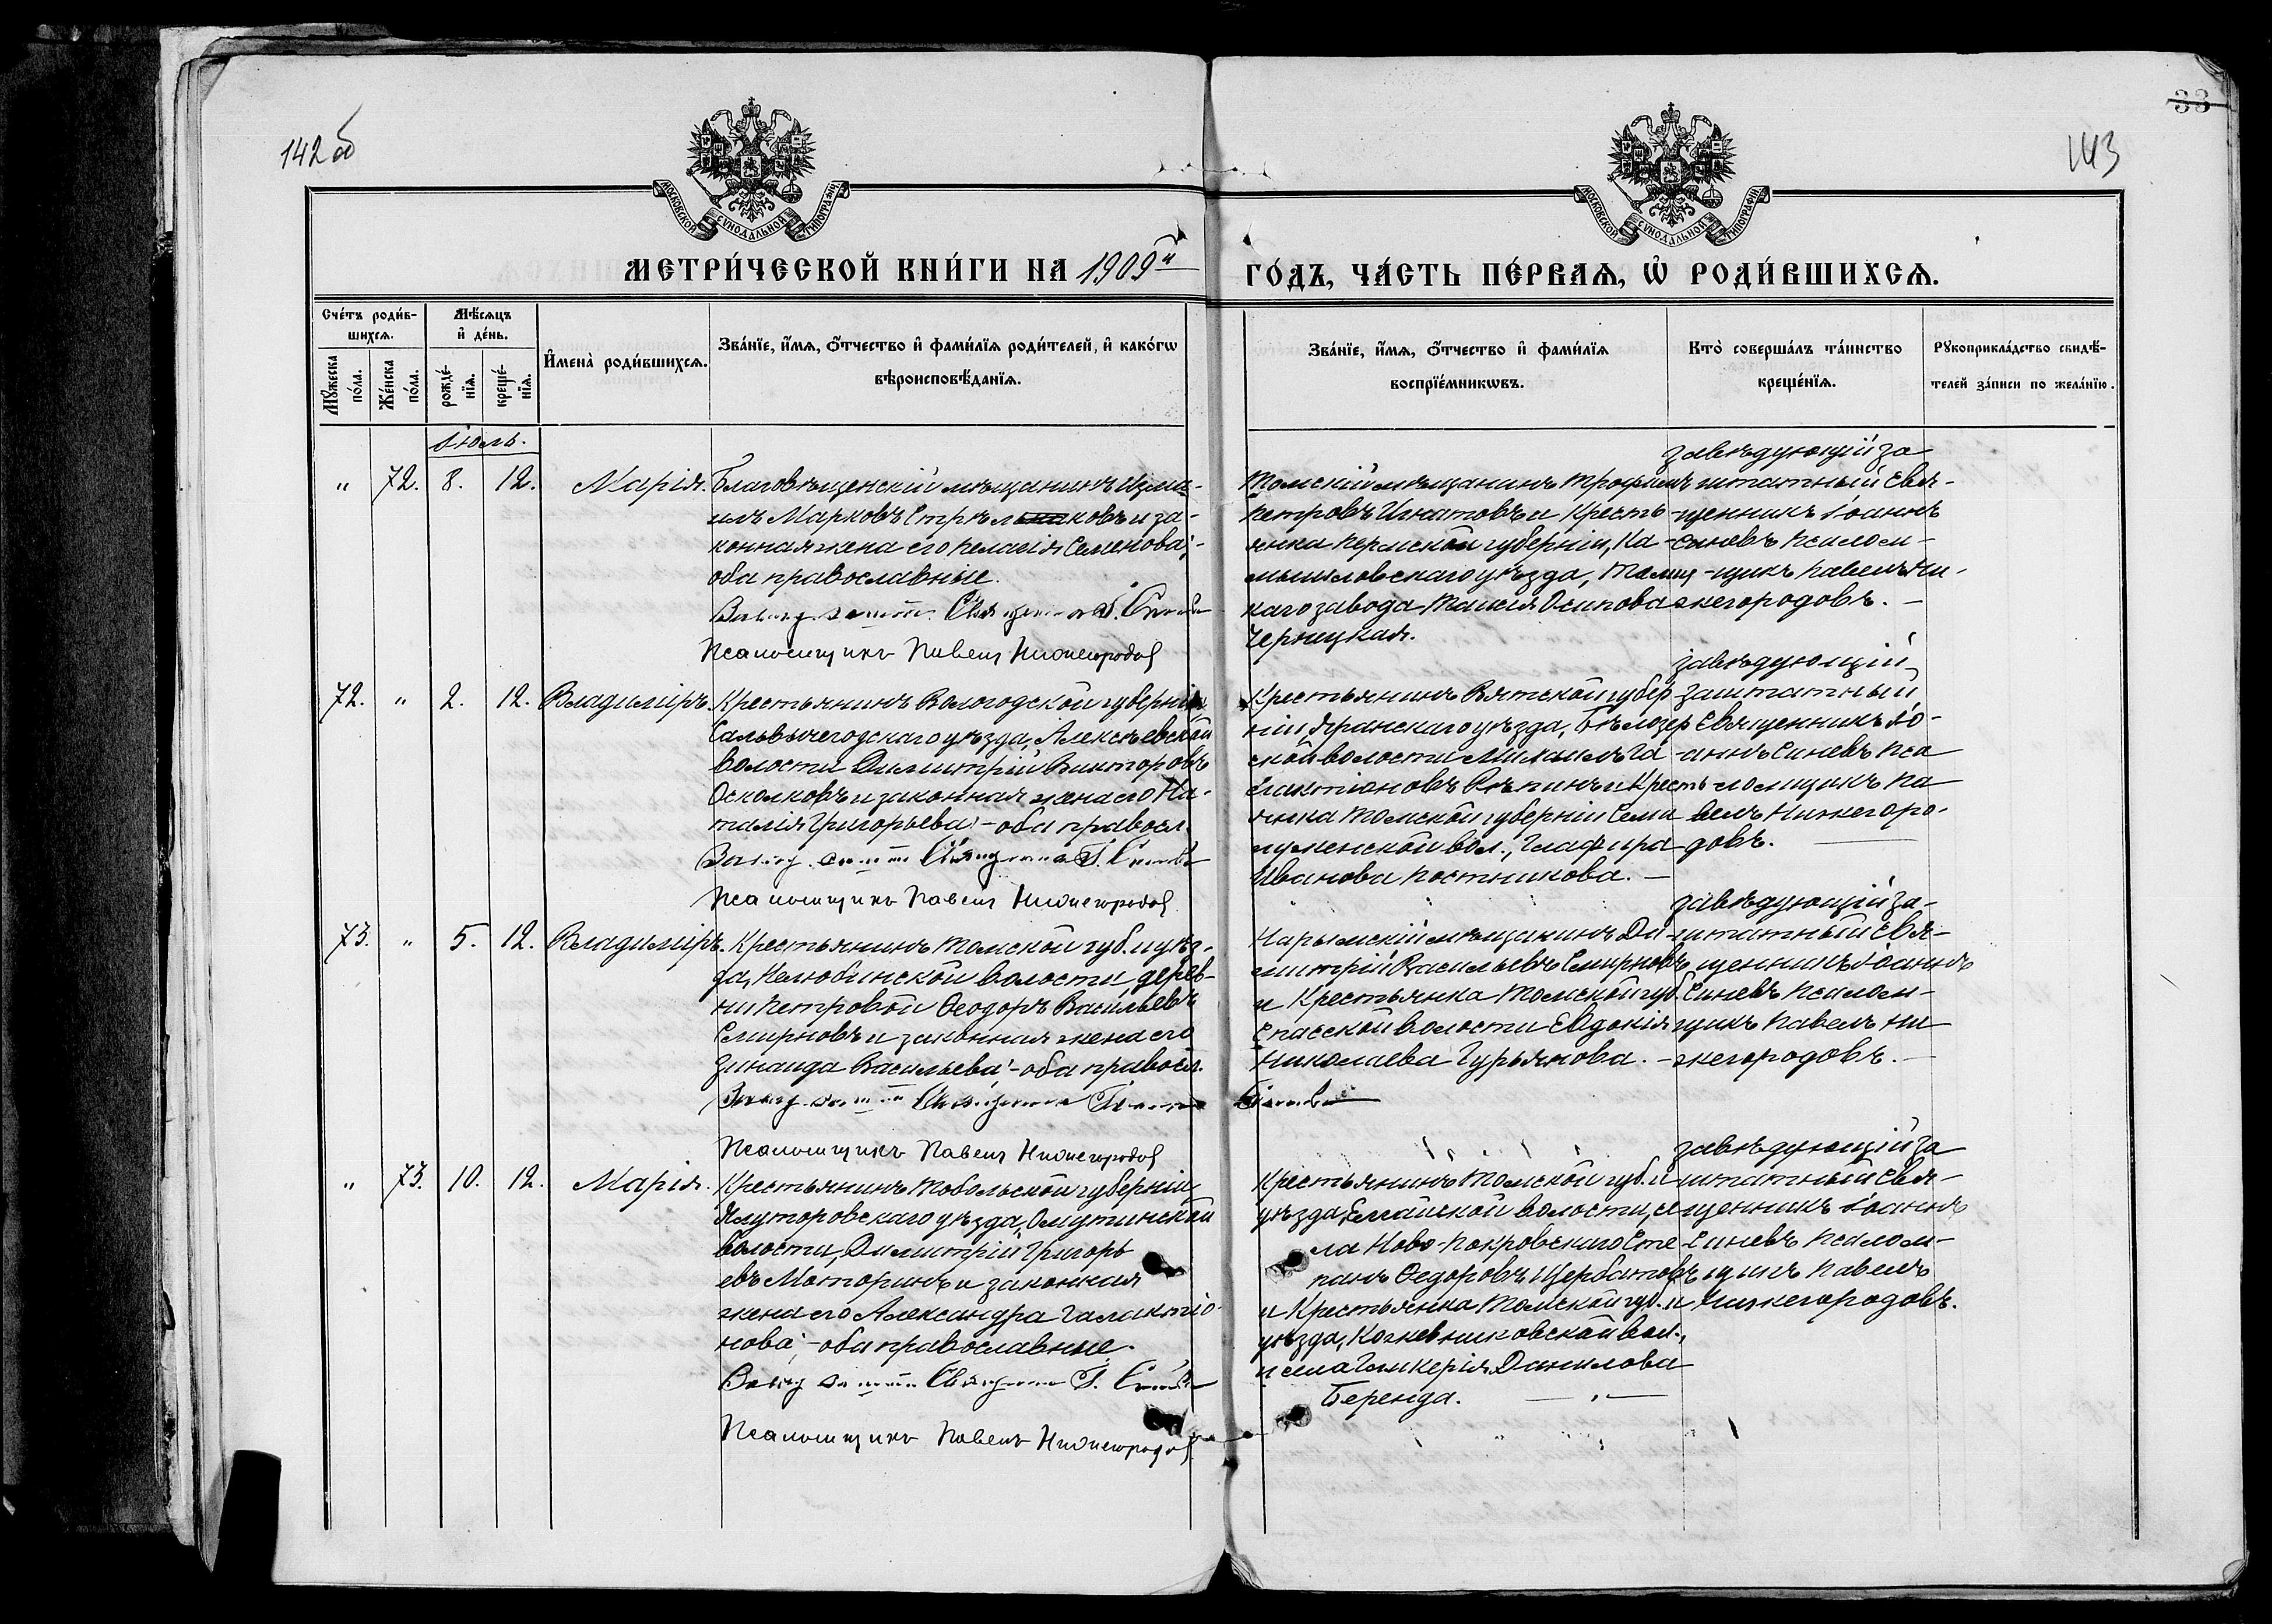 142 об
33
143
МОСКОВСКОЙ СѴНОДАЛЬНОЙ ТИПОГРАФІИ
МОСКОВСКОЙ СѴНОДАЛЬНОЙ ТИПОГРАФІИ
МЕТРИ́ЧЕСКОЙ КНИ́ГИ НА 1909й
ГО́ДЪ, ЧА́СТЬ ПЕ́РВАѦ, Ѡ҆ РОДИ́ВШИХСѦ.
Сче́тъ роди́в-
шихсѧ.
Мꙋ́жеска
по́ла.
Же́нска
по́ла.
Мѣ́сѧцъ
и҆ де́нь.
рожде́-
нїѧ.
креще́-
нїѧ.
И҆мена̀ роди́вшихсѧ.
Зва́нїе, и҆́мѧ, ѻ҆́тчество и҆ фами́лїѧ роди́телей, и҆ како́гѡ
вѣроисповѣ́данїѧ.
Зва́нїе, и҆́мѧ, ѻ҆́тчество и҆ фами́лїѧ
воспрїе́мникѡвъ.
Кто̀ соверша́лъ та́инство
креще́нїѧ.
Рꙋкоприкла́дство свидѣ́-
телей за́писи по жела́нїю.
Іюль.
" 72. 8. 12. Марія.
Благовѣщенскій мѣщанинъ Изма-
илъ Марковъ Стрѣльниковъ и за-
конная жена его Пелагія Семенова;-
оба православные.
Завѣд. зашт. Священ. І. Синевъ
Псаломщикъ Павелъ Нижегородов
Томскій мѣщанинъ Трофимъ
Петровъ Игнатовъ и Кресть-
янка Пермской губерніи, Ка-
мышловскаго уѣзда, Талиц-
каго завода Таисія Осипова
Черницкая.
завѣдующій за
штатный Свя-
щенникъ Іоаннъ
Синевъ псалом-
щикъ Павелъ Ни-
жегородовъ. -
72. " 2. 12. Владиміръ.
Крестьянинъ Вологодской губерніи,
Сальвычегодскаго уѣзда, Алексѣевской
волости Димитрій Викторовъ
Осколковъ и законная жена его На-
талія Григорьева; - оба правосл.
Завѣд. зашт. Священ. І. Синевъ
Псаломщикъ Павелъ Нижегородов
Крестьянинъ Вятской губер
ніи, Яранскаго уѣзда, Бѣлозер
ской волости Михаилъ Га-
лактіоновъ Рѣпинъ и Кресть
янка Томской губерніи Семи
луженской вол., Глафира
Иванова Постникова. -
завѣдующій
заштатный
Священникъ Іо-
аннъ Синевъ пса
ломщикъ Па
велъ Нижегоро-
довъ.
73. " 5. 12. Владиміръ.
Крестьянинъ Томской губ. и уѣз-
да, Нелюбинской волости дерев-
ни Петровой Ѳеодоръ Васильевъ
Смирновъ и законная жена его
Зинаида Васильева; - оба правосл.
Завѣд. зашт. Священ.
Синевъ
Псаломщикъ Павелъ Нижегородов
Нарымскій мѣщанинъ Ди-
митрій Васильевъ Смирновъ
и Крестьянка Томской губ.
Спасской волости Евдокія
Николаева Гурьянова. -
завѣдующій за-
штатный Свя-
щенникъ Іоаннъ
Синевъ псалом-
щикъ Павелъ Ни
жегородовъ. -
" 73. 10. 12. Марія.
Крестьянинъ Тобольской губерніи
Ялуторовскаго уѣзда, Омутинской
волости, Димитрій Григорь
евъ Моторинъ и законная
жена его Александра Галактіо-
нова; - оба православные.
Завѣд. зашт. Священ. І. Синевъ
Псаломщикъ Павелъ Нижегородов
Крестьянинъ Томской губ. и
уѣзда, Елгайской волости, се
ла Ново-Покровскаго Сте
панъ Ѳедоровъ Щербатовъ
и Крестьянка Томской губ. и
уѣзда, Кожевниковской вол.,
и села Гликерія Данилова
Беренда.
завѣдующій за
штатный Свя-
щенникъ Іоаннъ
Синевъ псалом-
щикъ Павелъ
Нижегородовъ.